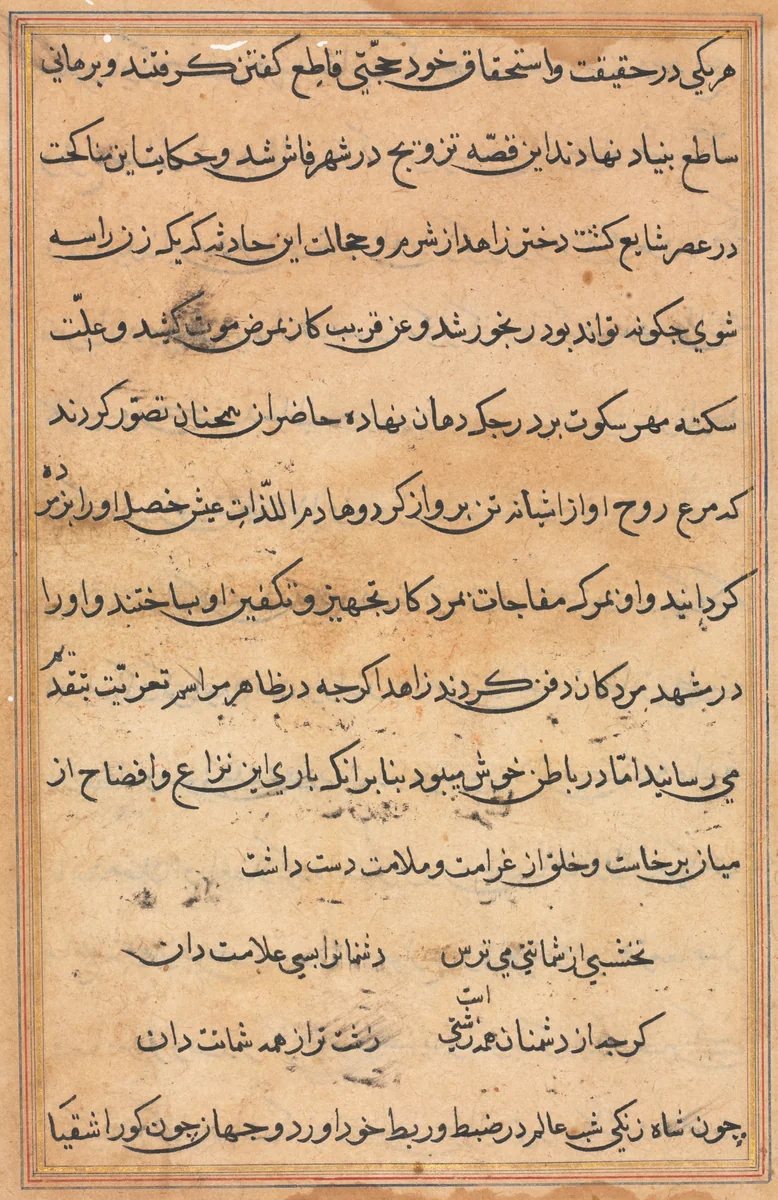 هر یکی در حقیقت و استحقاق خود حجّتی قاطع کفتن کرفتند و برهانی
ساطع بنیاد نهادند این قصّه تزویج در شهر فاش شد و حکایت این مناکحت
در عصر شایع کشت دختر زاهد از شرم و خجالت این حادثه که یک زن را سه
شوی جکونه تواند بود رنجور شد و عن قریب کار بمرض موت کشید و علّت
سکته مهر سکوت بر درجک دهان نهاده حاضران همجنان تصوّر کردند
که مرغ روح او از اشیانه تن برواز کرد و هادم اللذّات عیش خصل او را بزمرده
کردانید و او بمرک مفاجات بمرد کار تجهیز و تکفین او بساختند و او را
در مشهد مردکان دفن کردند زاهد اکرجه در ظاهر مراسم تعزیّت بتقدیم
می رسانید امّا در باطن خوش میبود بنا برانکه باری این نزاع و افضاح از
میان برخاست و خلق از غرامت و ملامت دست داشت
نخشبی از شماتتی می ترس دشمنانرا بسی علامت دان
کرجه از دشمنان همه زشتی است زشت تر از همه شماتت دان
چون شاه زنکی شب عالم در ضبط و ربط خود اورد و جهان چون کور اشقیا